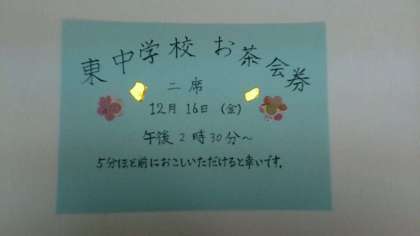 東中学校 お茶会券
二席
12月16日(金)
午後2時30分〜
5分ほど前におこしいただけると幸いです。